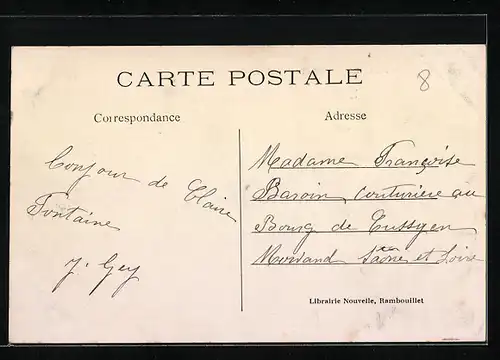 CARTE POSTALE
8
Correspondance
Adresse
Bonjour de Claire
Fontaine
J. Gey
Madame Françoise
Baroin couturière au
Bourg de Cussy en
Morvand Saône et Loire
Librairie Nouvelle, Rambouillet